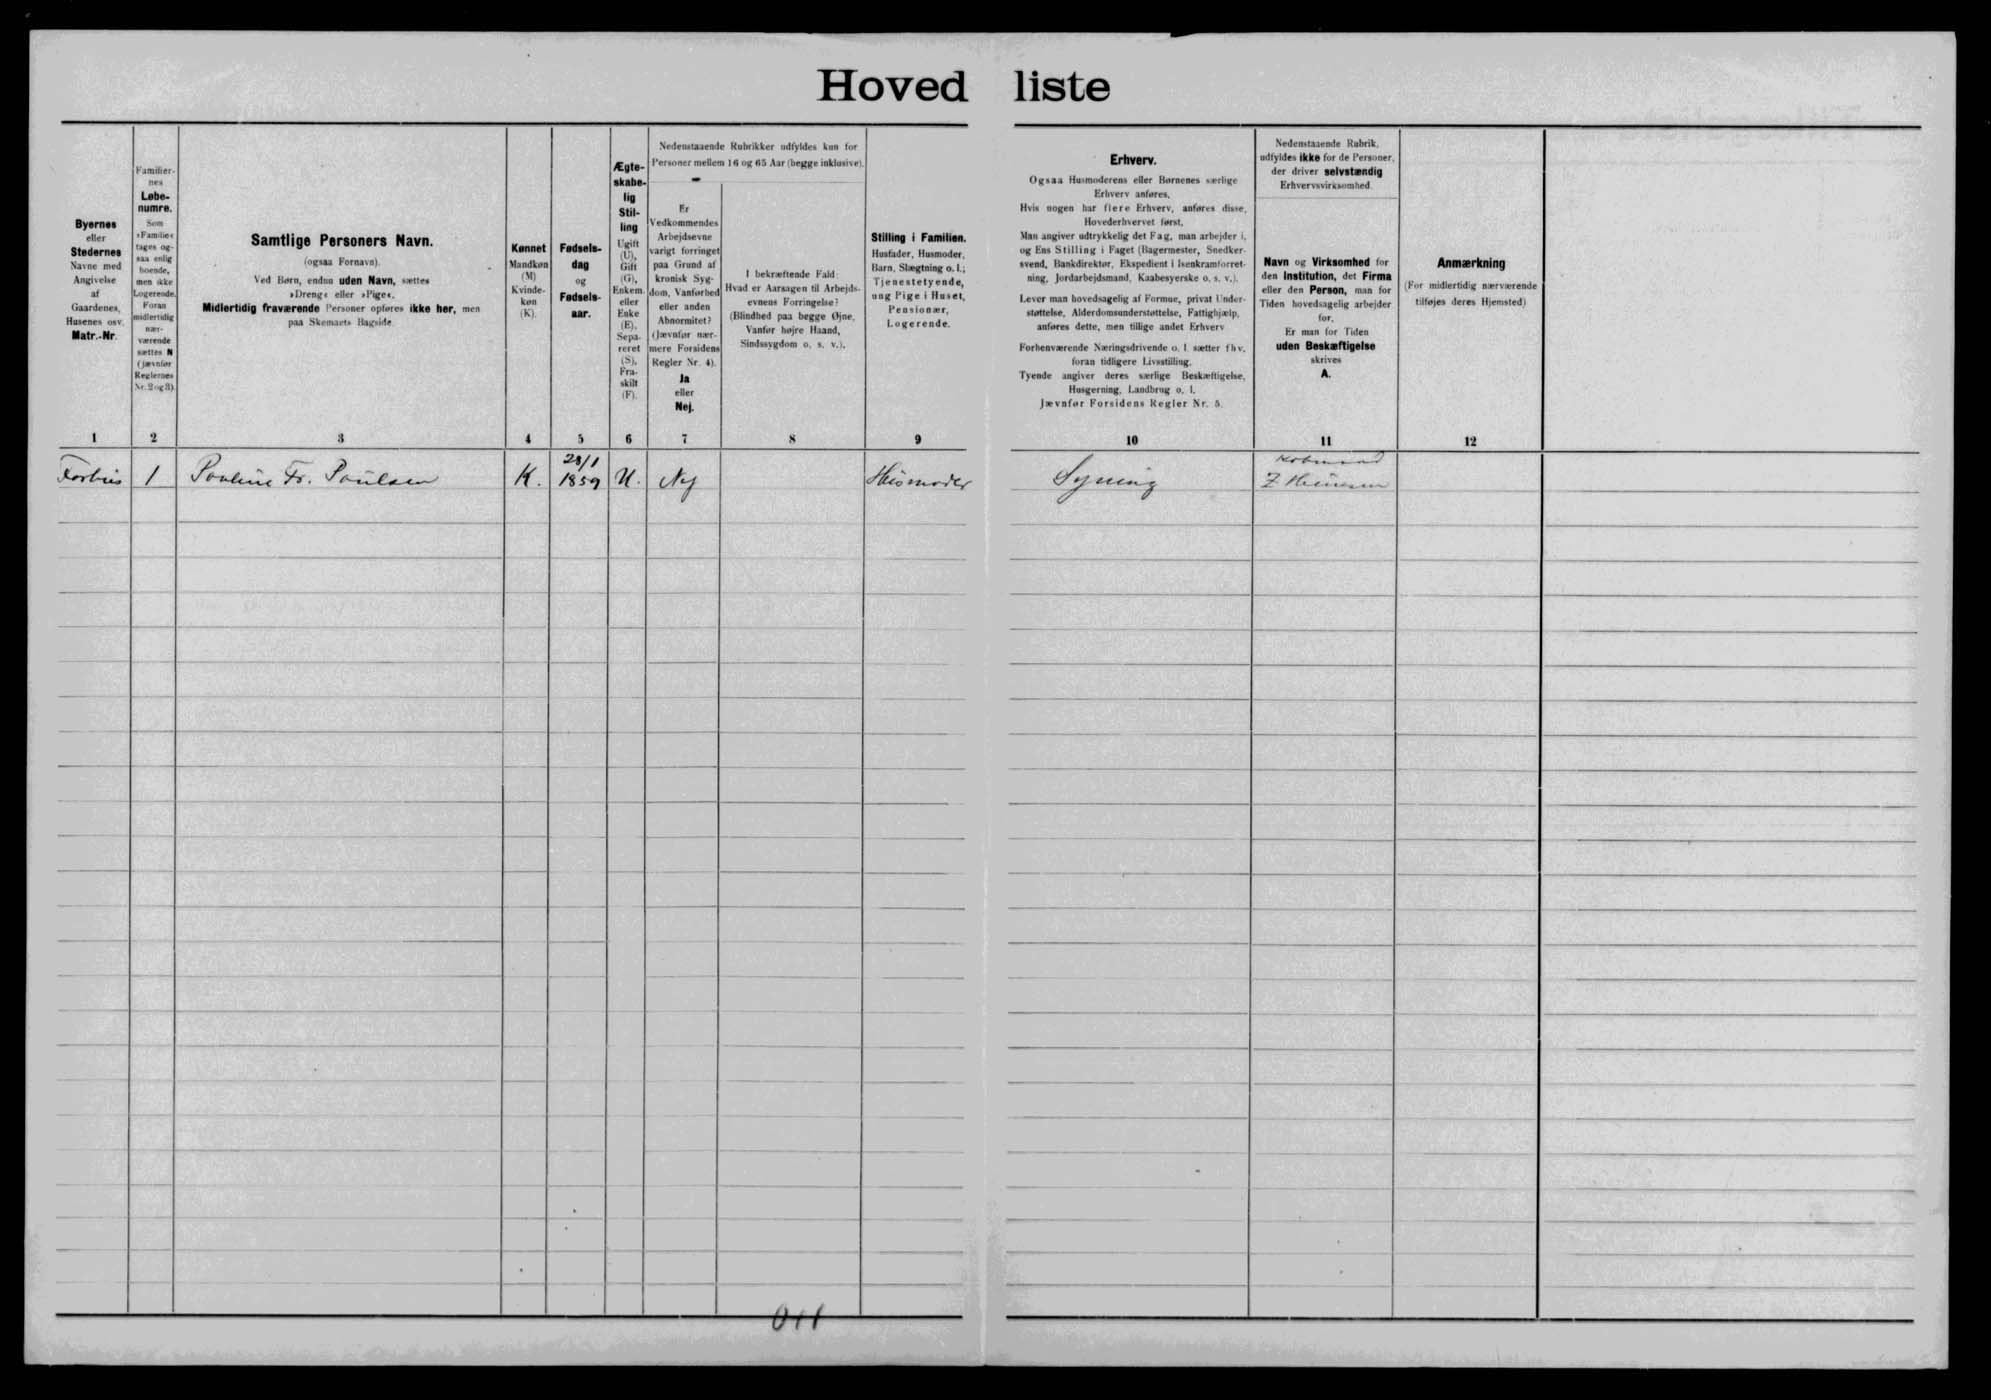 Hoved liste
Byernes
eller
Stedernes
Navne med
Angivelse
af
Gaardenes,
Husenes osv.
Matr.-Nr.
1
Familier-
nes
Løbe-
numre.
Som
»Familie«
tages og-
saa enlig
boende,
men ikke
Logerende.
Foran
midlertidig
nær-
værende
sættes N
(jævnfør
Reglernes
Nr. 2 og 3).
2
Samtlige Personers Navn.
(ogsaa Fornavn).
Ved Børn, endnu uden Navn, sættes
»Dreng« eller »Pige«.
Midlertidig fraværende Personer opføres ikke her, men
paa Skemaets Bagside.
3
Kønnet
Mandkøn
(M)
Kvinde-
køn
(K).
4
Fødsels-
dag
og
Fødsels-
aar.
5
Ægte-
skabe-
lig
Stil-
ling
Ugift
(U),
Gift
(G),
Enkem.
eller
Enke
(E).
Sepa-
reret
(S),
Fra-
skilt
(F).
6
Nedenstaaende Rubrikker udfyldes kun for
Personer mellem 16 og 65 Aar (begge inklusive).
Er
Vedkommendes
Arbejdsevne
varigt forringet
paa Grund af
kronisk Syg-
dom, Vanførhed
eller anden
Abnormitet?
(Jævnfør nær-
mere Forsidens
Regler Nr. 4).
Ja
eller
Nej.
7
I bekræftende Fald:
Hvad er Aarsagen til Arbejds-
evnens Forringelse?
(Blindhed paa begge Øjne,
Vanfør højre Haand,
Sindssygdom o. s. v.).
8
Stilling i Familien.
Husfader, Husmoder,
Barn, Slægtning o. l.;
Tjenestetyende,
ung Pige i Huset,
Pensionær,
Logerende.
9
Erhverv.
Ogsaa Husmoderens eller Børnenes særlige
Erhverv anføres.
Hvis nogen har flere Erhverv, anføres disse,
Hovederhvervet først.
Man angiver udtrykkelig det Fag, man arbejder i,
og Ens Stilling i Faget (Bagermester, Snedker-
svend, Bankdirektør, Ekspedient i Isenkramforret-
ning, Jordarbejdsmand, Kaabesyerske o. s. v.).
Lever man hovedsagelig af Formue, privat Under-
støttelse, Alderdomsunderstøttelse, Fattighjælp,
anføres dette, men tillige andet Erhverv
Forhenværende Næringsdrivende o. l. sætter fhv.
foran tidligere Livsstilling.
Tyende angiver deres særlige Beskæftigelse,
Husgerning, Landbrug o. l.
Jævnfør Forsidens Regler Nr. 5.
10
Nedenstaaende Rubrik,
udfyldes ikke for de Personer,
der driver selvstændig
Erhvervsvirksomhed.
Navn og Virksomhed for
den Institution, det Firma
eller den Person, man for
Tiden hovedsagelig arbejder
for.
Er man for Tiden
uden Beskæftigelse
skrives
A.
11
Anmærkning
(For midlertidig nærværende
tilføjes deres Hjemsted)
12
1 Pauline Fr. Poulsen K. 28/1
1859 U. Nej Husmoder Syning Købmand
Z. Heinesen